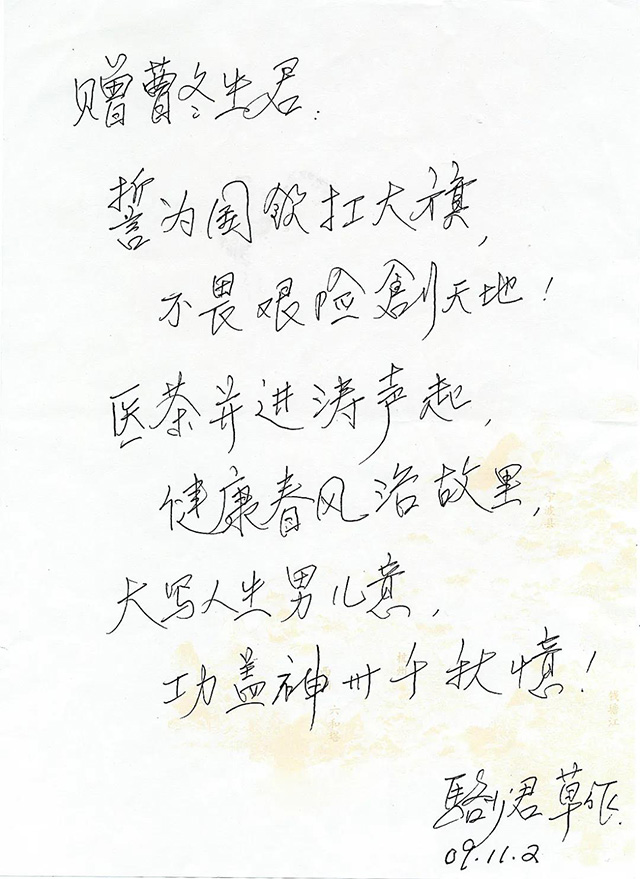 赠曹冬生君:
誓为国饮扛大旗,
不畏艰险創天地!
医茶并进涛声起,
健康春风治故里,
大写人生男儿意,
功盖神州千秋憶!
骆少君草作.
09.11.2
六和塔
钱塘江